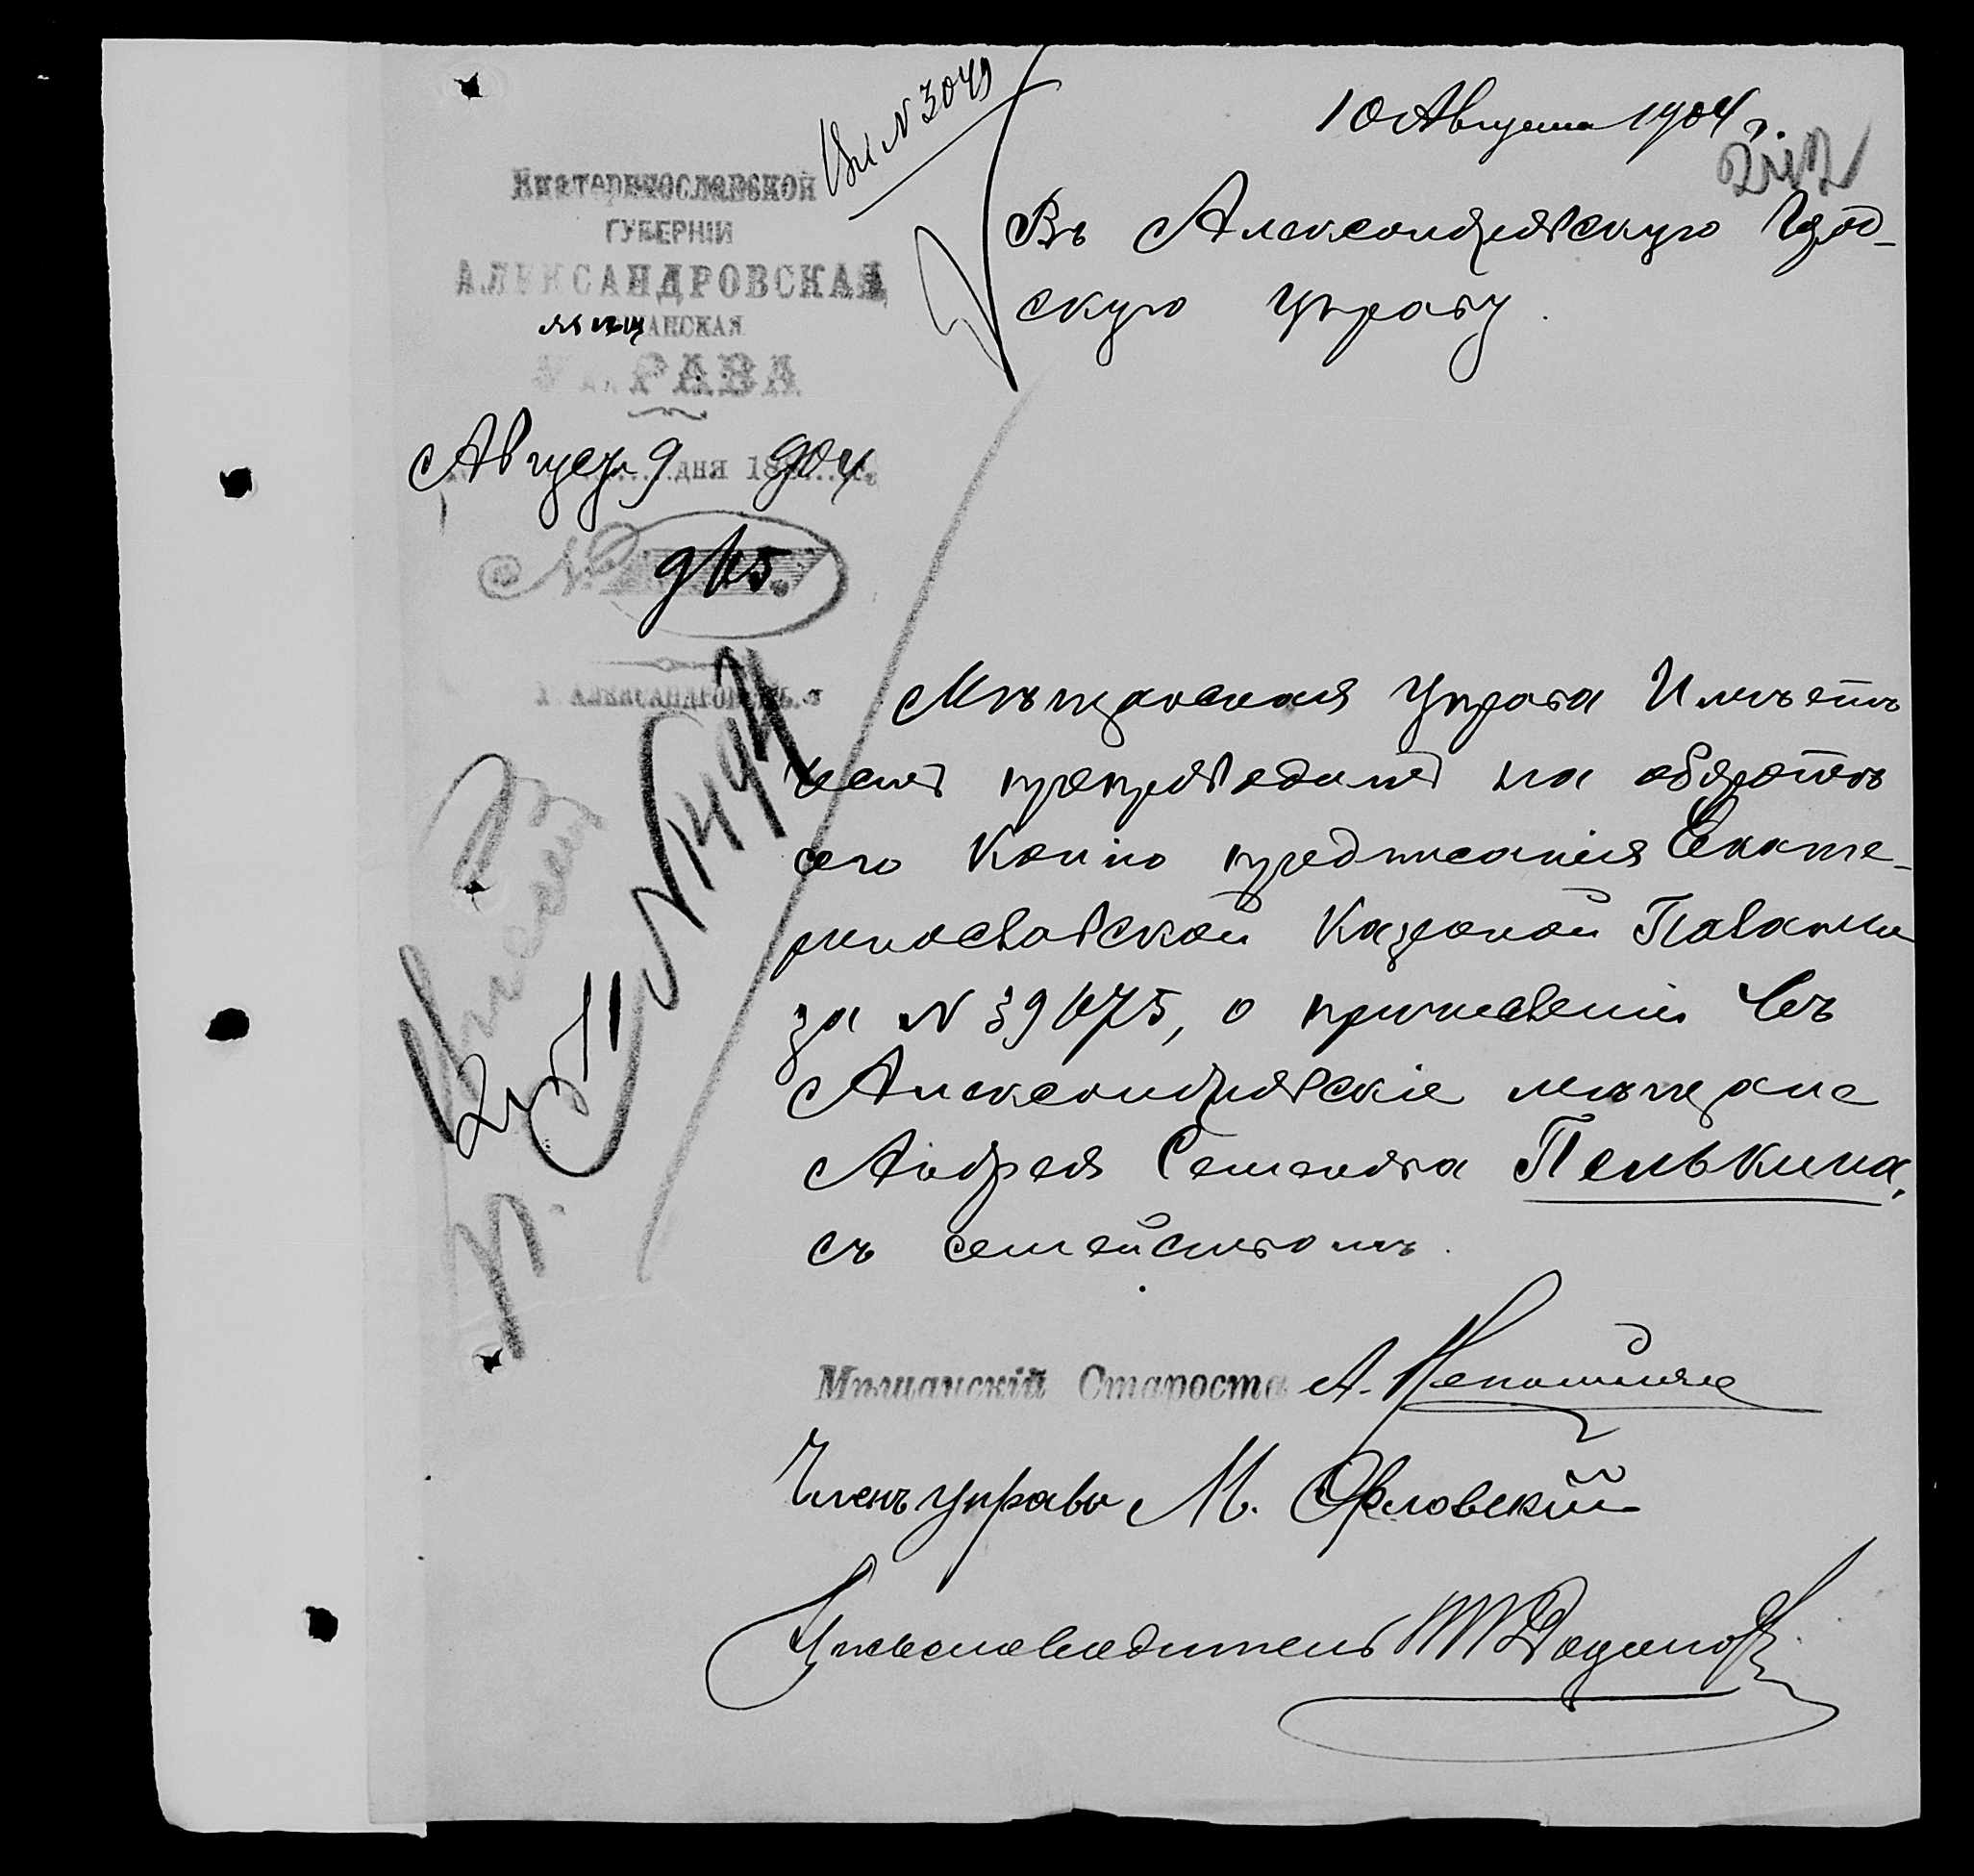 Вх № 3049
10 Августа 1904 г.
Екатеринославской
ГУБЕРНІИ
АЛЕКСАНДРОВСКАЯ
мѣщАНСКАЯ
УПРАВА
Августа 9 дня 1904 г.
№
г. АЛЕКСАНДРОВСКЪ.
Въ Александровскую Город-
скую Управу.
Мѣщанская Управа Имѣетъ
честь препроводить на оборотѣ
сего Копію предписанія Екате-
ринославской Казенной Палаты
за № 39675, о причисленіи въ
Александровскіе мѣщане
Андрея Семенова Пенькина,
съ семействомъ.
Мѣщанскій Староста А.
Членъ управы М. Орловскій
Письмоводитель